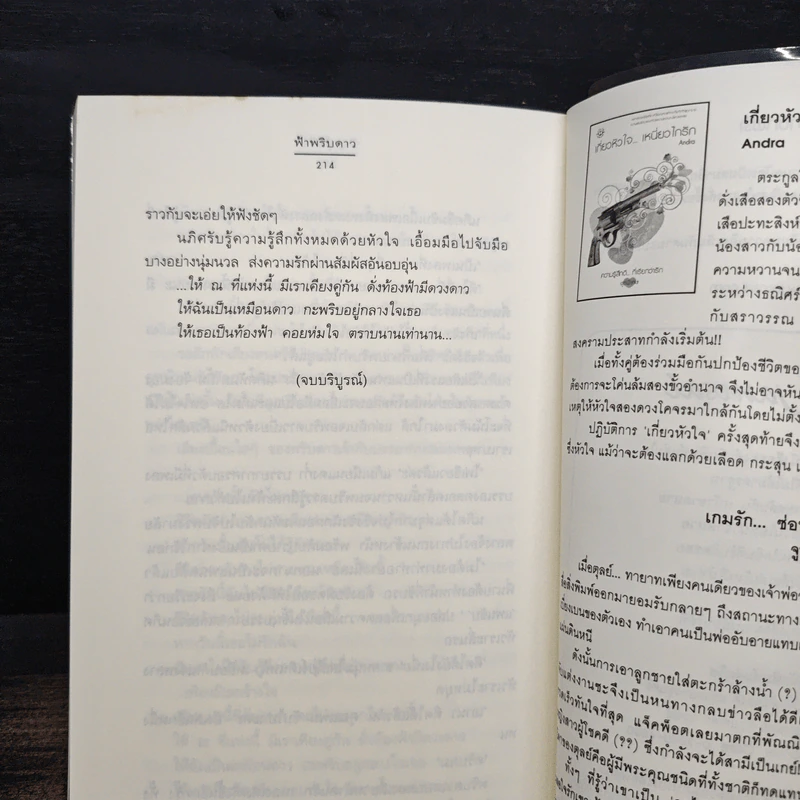 ฟ้าพริบดาว
214
ราวกับจะเอ่ยให้ฟังชัดๆ
นภิศรับรู้ความรู้สึกทั้งหมดด้วยหัวใจ เอื้อมมือไปจับมือ
บางอย่างนุ่มนวล ส่งความรักผ่านสัมผัสอันอบอุ่น
...ให้ ณ ที่แห่งนี้ มีเราเคียงคู่กัน ดั่งท้องฟ้ามีดวงดาว
ให้ฉันเป็นเหมือนดาว กะพริบอยู่กลางใจเธอ
ให้เธอเป็นท้องฟ้า คอยห่มใจ ตราบนานเท่านาน...
(จบบริบูรณ์)
เกี่ยวหัวใจ... เหนี่ยวไกรัก
Andra
เกี่ยวหัว
Andra
ตระกูล
ดั่งเสือสองตัว
เสือปะทะสิงห์
น้องสาวกับน้อ
ความหวานจน
ระหว่างธณิศร์
กับสราวรรณ
สงครามประสาทกำลังเริ่มต้น!!
เมื่อทั้งคู่ต้องร่วมมือกันปกป้องชีวิตของ
ต้องการจะโค่นล้มสองขั้วอำนาจ จึงไม่อาจหัน
เหตุให้หัวใจสองดวงโคจรมาใกล้กันโดยไม่ตั้ง
ปฏิบัติการ 'เกี่ยวหัวใจ' ครั้งสุดท้ายจึง
ซึ่งหัวใจ แม้ว่าจะต้องแลกด้วยเลือด กระสุน
เกมรัก... ซ่อ
เมื่อตุลย์... ทายาทเพียงคนเดียวของเจ้าพ่อ
สื่อสิ่งพิมพ์ออกมายอมรับกลายๆ ถึงสถานะทาง
เบี่ยงเบนของตัวเอง ทำเอาคนเป็นพ่ออับอายแทบ
แผ่นดินหนี
ดังนั้นการเอาลูกชายใส่ตะกร้าล้างน้ำ (?)
จับแต่งงานซะจึงเป็นหนทางกลบข่าวลือได้ดี
รวดเร็วทันใจที่สุด แจ็คพ็อตเลยมาตกที่พัณณิ
หญิงสาวผู้โชคดี (??) ซึ่งกำลังจะได้สามีเป็นเกย์
ของตุลย์คือผู้มีพระคุณชนิดที่ทั้งชาติก็ทดแทน
ทั้งๆ ที่รู้ว่าเขาเป็น